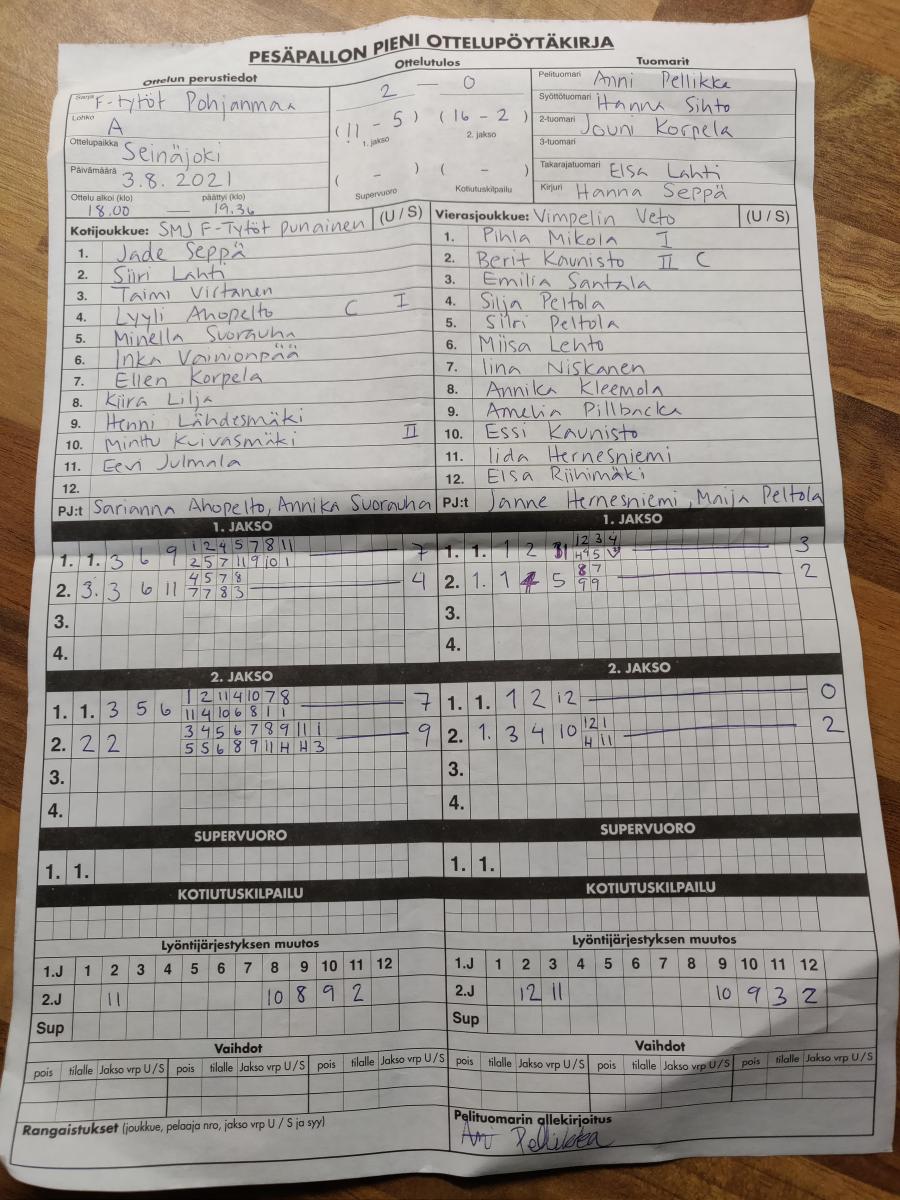 PESÄPALLON PIENI OTTELUPÖYTÄKIRJA
Ottelun perustiedot
Sarja F-tytöt Pohjanmaa
Lohko A
Ottelupaikka Seinäjoki
Päivämäärä 3.8.2021
Ottelu alkoi (klo) päättyi (klo)
18.00 — 19.36
Ottelutulos
2 — 0
(11 - 5) (16 - 2)
1. jakso 2. jakso
( - ) ( - )
Supervuoro Kotiutuskilpailu
Tuomarit
Pelituomari Anni Pellikka
Syöttötuomari Hanna Sihto
2-tuomari Jouni Korpela
3-tuomari
Takarajatuomari Elsa Lahti
Kirjuri Hanna Seppä
Kotijoukkue: SMJ F-Tytöt punainen (U / S)
1. Jade Seppä
2. Siiri Lahti
3. Taimi Virtanen
4. Lyyli Ahopelto C I
5. Minella Suorauha
6. Inka Vainionpää
7. Ellen Korpela
8. Kiira Lilja
9. Henni Lähdesmäki
10. Minttu Kuivasmäki II
11. Eevi Julmala
12.
PJ:t Sarianna Ahopelto, Annika Suorauha
Vierasjoukkue: Vimpelin Veto (U / S)
1. Pihla Mikola I
2. Berit Kaunisto II C
3. Emilia Santala
4. Silja Peltola
5. Siiri Peltola
6. Miisa Lehto
7. Iina Niskanen
8. Annika Kleemola
9. Amelia Pillbacka
10. Essi Kaunisto
11. Iida Hernesniemi
12. Elsa Riihimäki
PJ:t Janne Hernesniemi, Maija Peltola
1. JAKSO
1. 1. 3 6 9 1 2 4 5 7 8 11 7
2 5 7 11 9 10 1
2. 3. 3 6 11 4 5 7 8 4
7 7 8 3
3.
4.
1. JAKSO
1. 1. 1 2 11 1 2 3 4 3
H 4 5
2. 1. 1 5 8 7 2
9 9
3.
4.
2. JAKSO
1. 1. 3 5 6 1 2 11 4 10 7 8 7
11 4 10 6 8 1 1
2. 2 2 3 4 5 6 7 8 9 11 1 9
5 5 6 8 9 11 H H 3
3.
4.
2. JAKSO
1. 1. 1 2 12 0
2. 1. 3 4 10 12 1 2
H 11
3.
4.
SUPERVUORO
1. 1.
SUPERVUORO
1. 1.
KOTIUTUSKILPAILU
KOTIUTUSKILPAILU
Lyöntijärjestyksen muutos
1.J 1 2 3 4 5 6 7 8 9 10 11 12
2.J 11 10 8 9 2
Sup
Lyöntijärjestyksen muutos
1.J 1 2 3 4 5 6 7 8 9 10 11 12
2.J 12 11 10 9 3 2
Sup
Vaihdot
pois tilalle Jakso vrp U/S pois tilalle Jakso vrp U/S pois tilalle Jakso vrp U/S
Vaihdot
pois tilalle Jakso vrp U/S pois tilalle Jakso vrp U/S pois tilalle Jakso vrp U/S
Rangaistukset (joukkue, pelaaja nro, jakso vrp U / S ja syy)
Pelituomarin allekirjoitus
Anni Pellikka